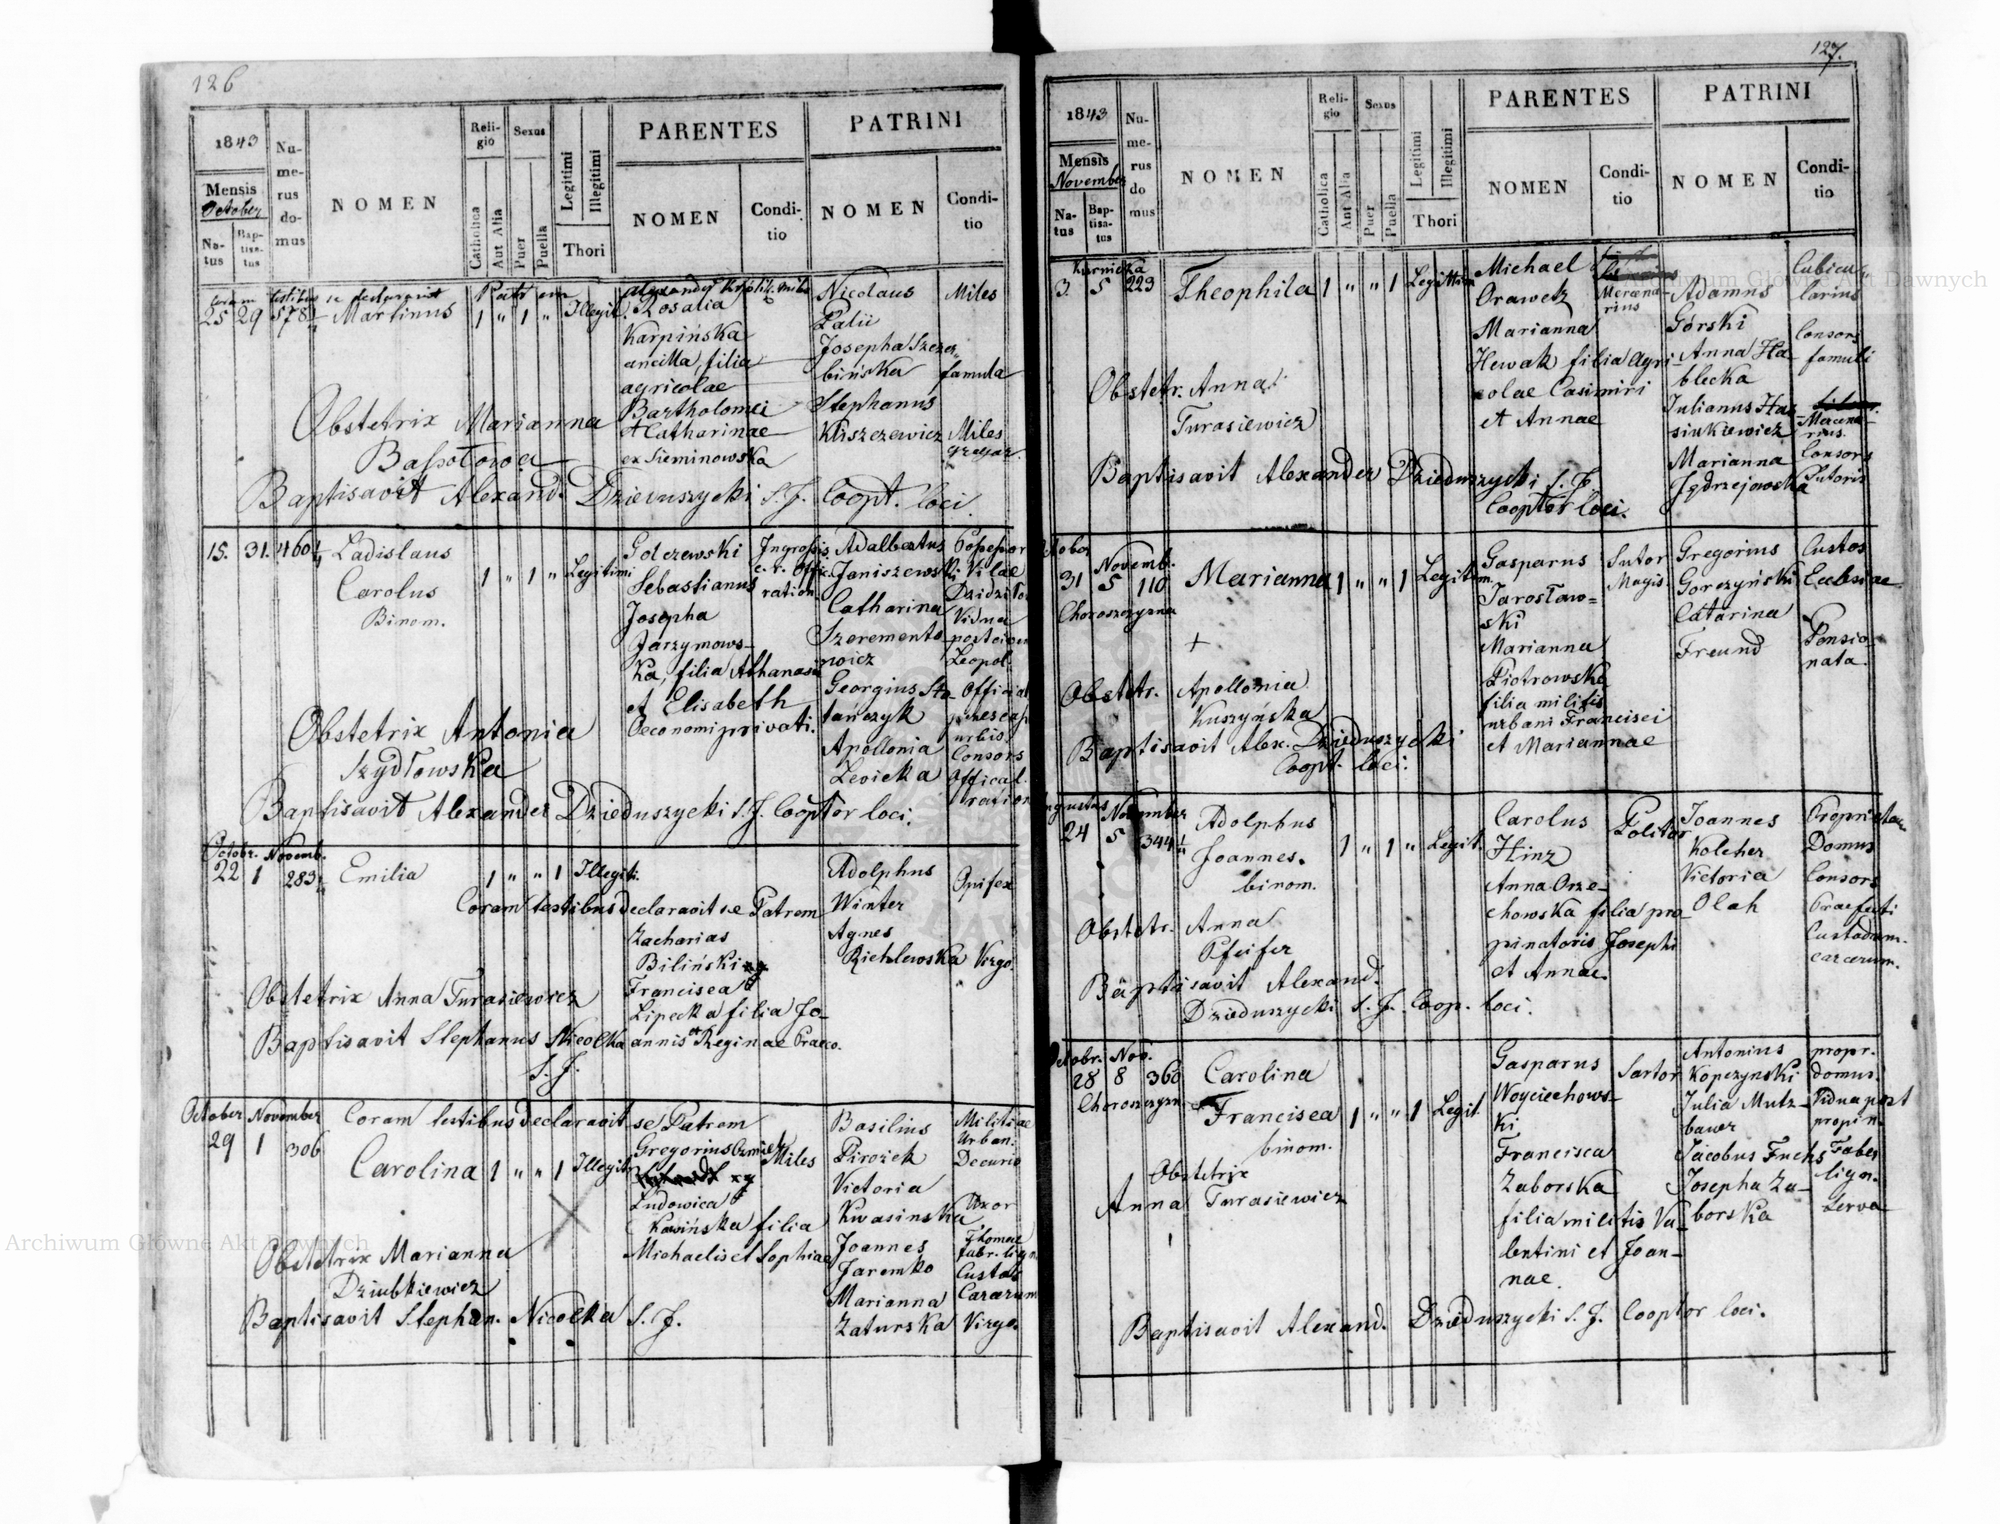 126
1843
Mensis
October
Na-
tus
Bap-
tisa-
tus
Nu-
me-
rus
do-
mus
NOMEN
Reli-
gio
Catholica
Aut Alia
Sexus
Puer
Puella
Legitimi
Illegitimi
Thori
PARENTES
NOMEN
Condi-
tio
PATRINI
NOMEN
Condi-
tio
Coram testibus se declaravit Patrem
25 29 578 Martinus 1 " 1 " Illegit.
Rosalia
Karpińska
ancilla, filia
agricolae
Bartholomei
et Catharinae
ex Sieminowska
Nicolaus Miles
Palii
Josepha Szczer-
bińska famula
Stephanus
Kliszczewicz Miles
gregar.
Obstetrix Marianna
Bassotowa
Baptisavit Alexand. Dzieduszycki S. J. Coopt. loci.
15. 31. 460 Ladislaus
Carolus
Binom.
1 " 1 " Legitimi
Golczewski
Sebastianus
Josepha
Jarzymows-
ka, filia Athanasii
et Elisabeth
Oeconomi privati.
Ingrossis.
c. r. Offic.
ration.
Adalbertus
Janiszewski
Catharina
Szeremento-
wicz
Georgius Sta-
tańczyk
Apollonia
Levicka
Possessor
Villae
Vidua
Leopol.
urbis.
Consors
Official.
ration
Obstetrix Antonia
Szydłowska
Baptisavit Alexander Dzieduszycki S. J. Cooptor loci.
Octobr. Novemb.
22 1 283 Emilia 1 " " 1 Illegiti.
Coram testibus declaravit se Patrem
Zacharias
Biliński
Francisca
Lipecka filia Jo-
annis et Reginae Praeco.
Adolphus Opifex
Winter
Agnes
Richlewska Virgo.
Obstetrix Anna Turasiewicz
Baptisavit Stephanus Nicolka
S. J.
October November
29 1 306
Coram testibus declaravit se Patrem
Carolina 1 " " 1 Illegit.
Gregorius
Miles
Ludowica
Kawińska filia
Michaelis et Sophiae
Basilius
Pirożek
Victoria
Kwasinska
Joannes
Jaremko
Marianna
Zaturska
Militiae
Urban.
Decurio
Uxor
Thomae
fabr. lign.
Custos
Carcerum
Virgo.
Obstetrix Marianna
Dziubkiewicz
Baptisavit Stephan. Nicolka S. J.
127.
1843
Mensis
November
Na-
tus
Bap-
tisa-
tus
Nu-
me-
rus
do-
mus
NOMEN
Reli-
gio
Catholica
Aut Alia
Sexus
Puer
Puella
Legitimi
Illegitimi
Thori
PARENTES
NOMEN
Condi-
tio
PATRINI
NOMEN
Condi-
tio
Kurnicka
3. 5 223 Theophila 1 " " 1 Legitim.
Michael
Orawetz
Marianna
Hewak filia Agri-
colae Casimiri
et Annae
Mercena-
rius
Adamus
Górski
Anna Ha-
blecka
Julianus Has-
sinkiewicz
Marianna
Jędrzejowska
Cubicu-
larius
Consors
famuli
Mercena-
rius.
Consors
Sutoris
Obstetr. Anna
Turasiewicz
Baptisavit Alexander Dzieduszycki S. J.
Cooptor loci.
October Novemb.
31 5 110 Marianna 1 " " 1 Legitim.
Choroszczyzna
+
Gasparus
Jarosław-
ski
Marianna
Piotrowska
filia militis
urbani Francisci
et Mariannae
Sutor
Magis.
Gregorius
Gorczyński
Catarina
Freund
Custos
Ecclesiae
Pensio-
nata.
Obstetr. Apollonia
Kuszyńska
Baptisavit Alex. Dzieduszycki
Coopt. loci.
Augustus November
24 5 344 Adolphus
Joannes.
binom.
1 " 1 " Legit.
Carolus
Hinz
Anna Orze-
chowska filia pro-
pinatoris Josephi
et Annae.
Politor
Joannes
Kolcher
Victoria
Olah
Proprietar.
Domus
Consors
Praefecti
Custodum.
carcerum.
Obstetr. Anna
Pfeifer
Baptisavit Alexand.
Dzieduszycki S. J. Coop. loci.
Octobr. Nov.
28 8 360 Carolina
Choroszczyzn
Francisca
binom.
1 " " 1 Legit.
Gasparus
Woyciechows-
ki
Francisca
Zaborska
filia militis Va-
lentini et Joan-
nae.
Sartor
Antonius
Kopczynski
Julia Mutz-
bauer
Jacobus Fuchs
Josepha Za-
borska
propr.
domus.
Vidua post
propin.
Faber
lign.
Serva
Obstetrix
Anna Turasiewicz
Baptisavit Alexand. Dzieduszycki S. J. Cooptor loci.
Archiwum Główne Akt Dawnych
Archiwum Główne Akt Dawnych